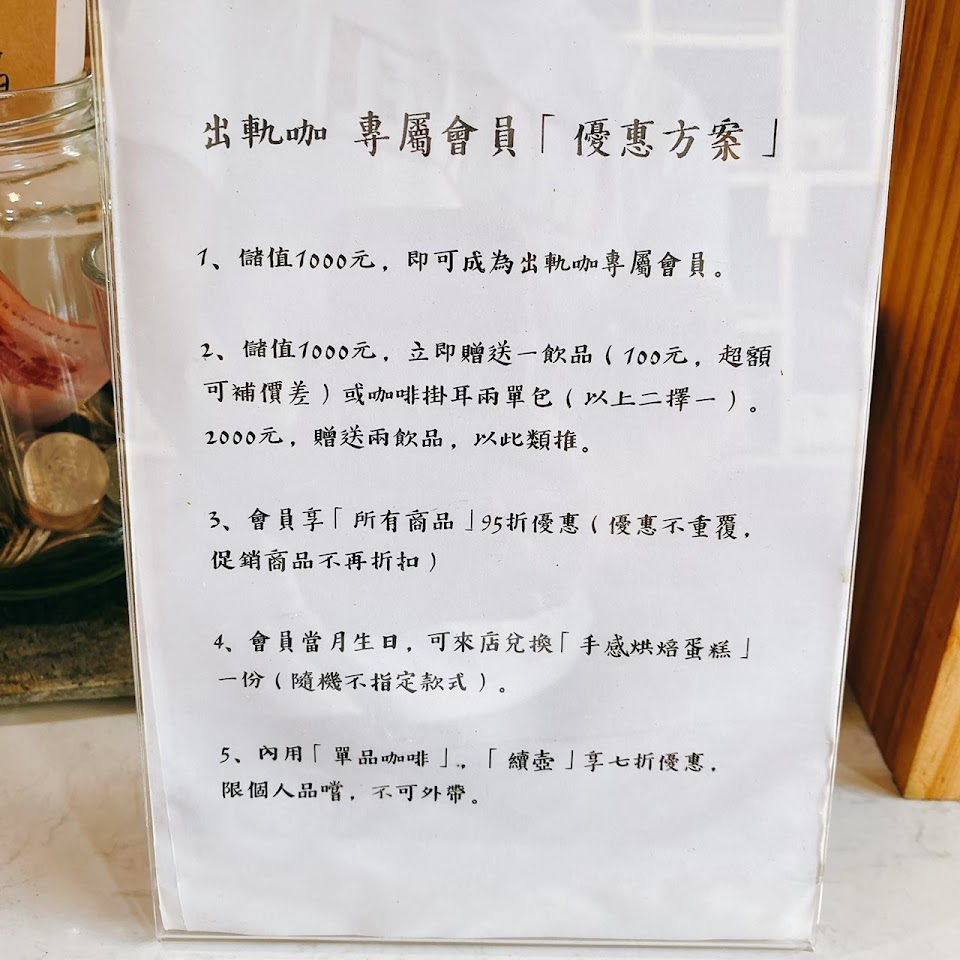 出軌咖 專屬會員「優惠方案」
1、儲值1000元，即可成為出軌咖專屬會員。
2、儲值1000元，立即贈送一飲品（100元，超額
可補價差）或咖啡掛耳兩單包（以上二擇一）。
2000元，贈送兩飲品，以此類推。
3、會員享「所有商品」95折優惠（優惠不重覆，
促銷商品不再折扣）
4、會員當月生日，可來店兌換「手感烘焙蛋糕」
一份（隨機不指定款式）。
5、內用「單品咖啡」，「續壺」享七折優惠，
限個人品嚐，不可外帶。